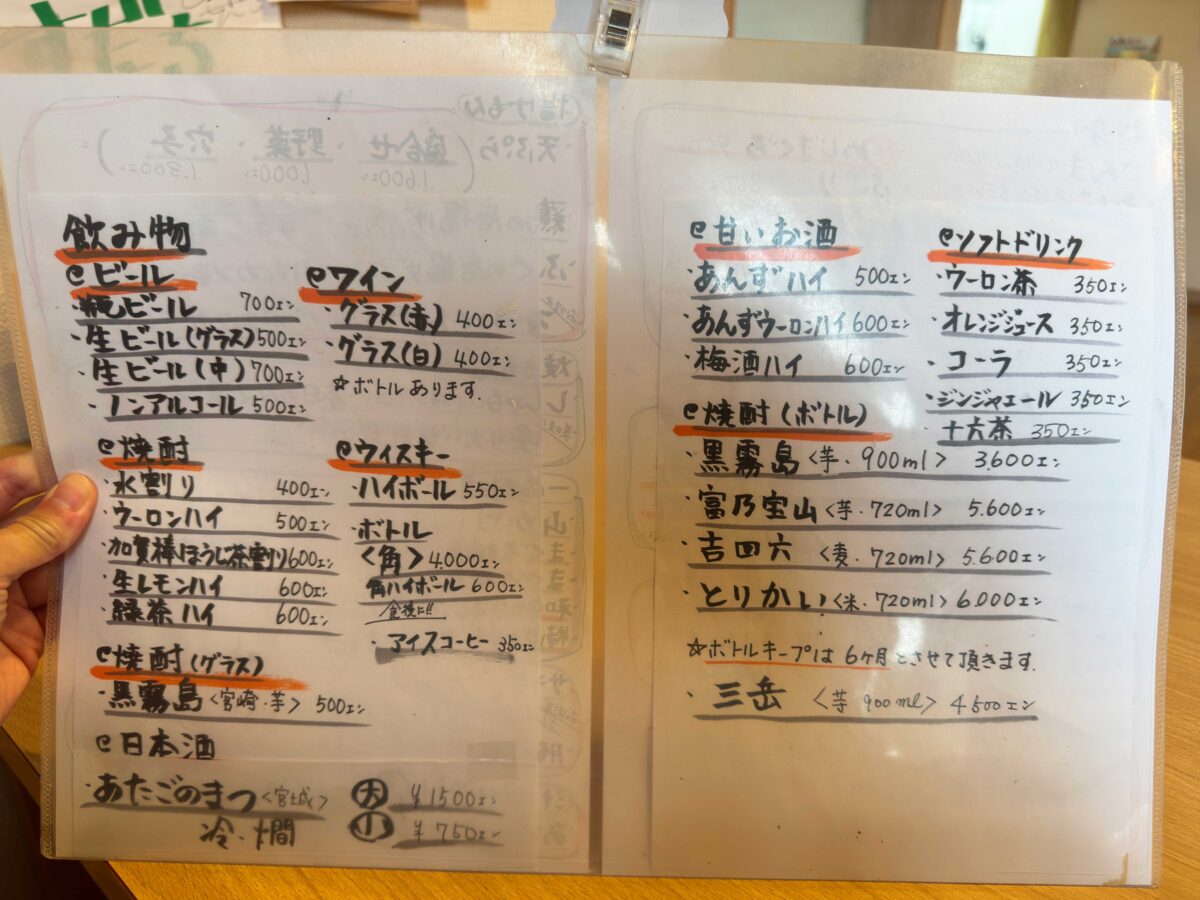 飲み物
℮ビール
・瓶ビール 700エン
・生ビール(グラス) 500エン
・生ビール(中) 700エン
・ノンアルコール 500エン
℮ワイン
・グラス(赤) 400エン
・グラス(白) 400エン
☆ボトルあります。
℮焼酎
・水割り 400エン
・ウーロンハイ 500エン
・加賀棒ほうじ茶割り 600エン
・生レモンハイ 600エン
・緑茶ハイ 600エン
℮ウィスキー
・ハイボール 550エン
・ボトル
<角> 4.000エン
角ハイボール 600エン
食後に!!
・アイスコーヒー 350エン
℮焼酎(グラス)
・黒霧島<宮崎・芋> 500エン
℮日本酒
・あたごのまつ<宮城> 大 ¥1500エン
冷・燗 小 ¥750エン
℮甘いお酒
・あんずハイ 500エン
・あんずウーロンハイ 600エン
・梅酒ハイ 600エン
℮ソフトドリンク
・ウーロン茶 350エン
・オレンジジュース 350エン
・コーラ 350エン
・ジンジャエール 350エン
・十六茶 350エン
℮焼酎(ボトル)
・黒霧島<芋・900ml> 3.600エン
・富乃宝山<芋・720ml> 5.600エン
・吉四六<麦・720ml> 5.600エン
・とりかい<米・720ml> 6.000エン
☆ボトルキープは6ヶ月とさせて頂きます。
・三岳<芋 900ml> 4500エン